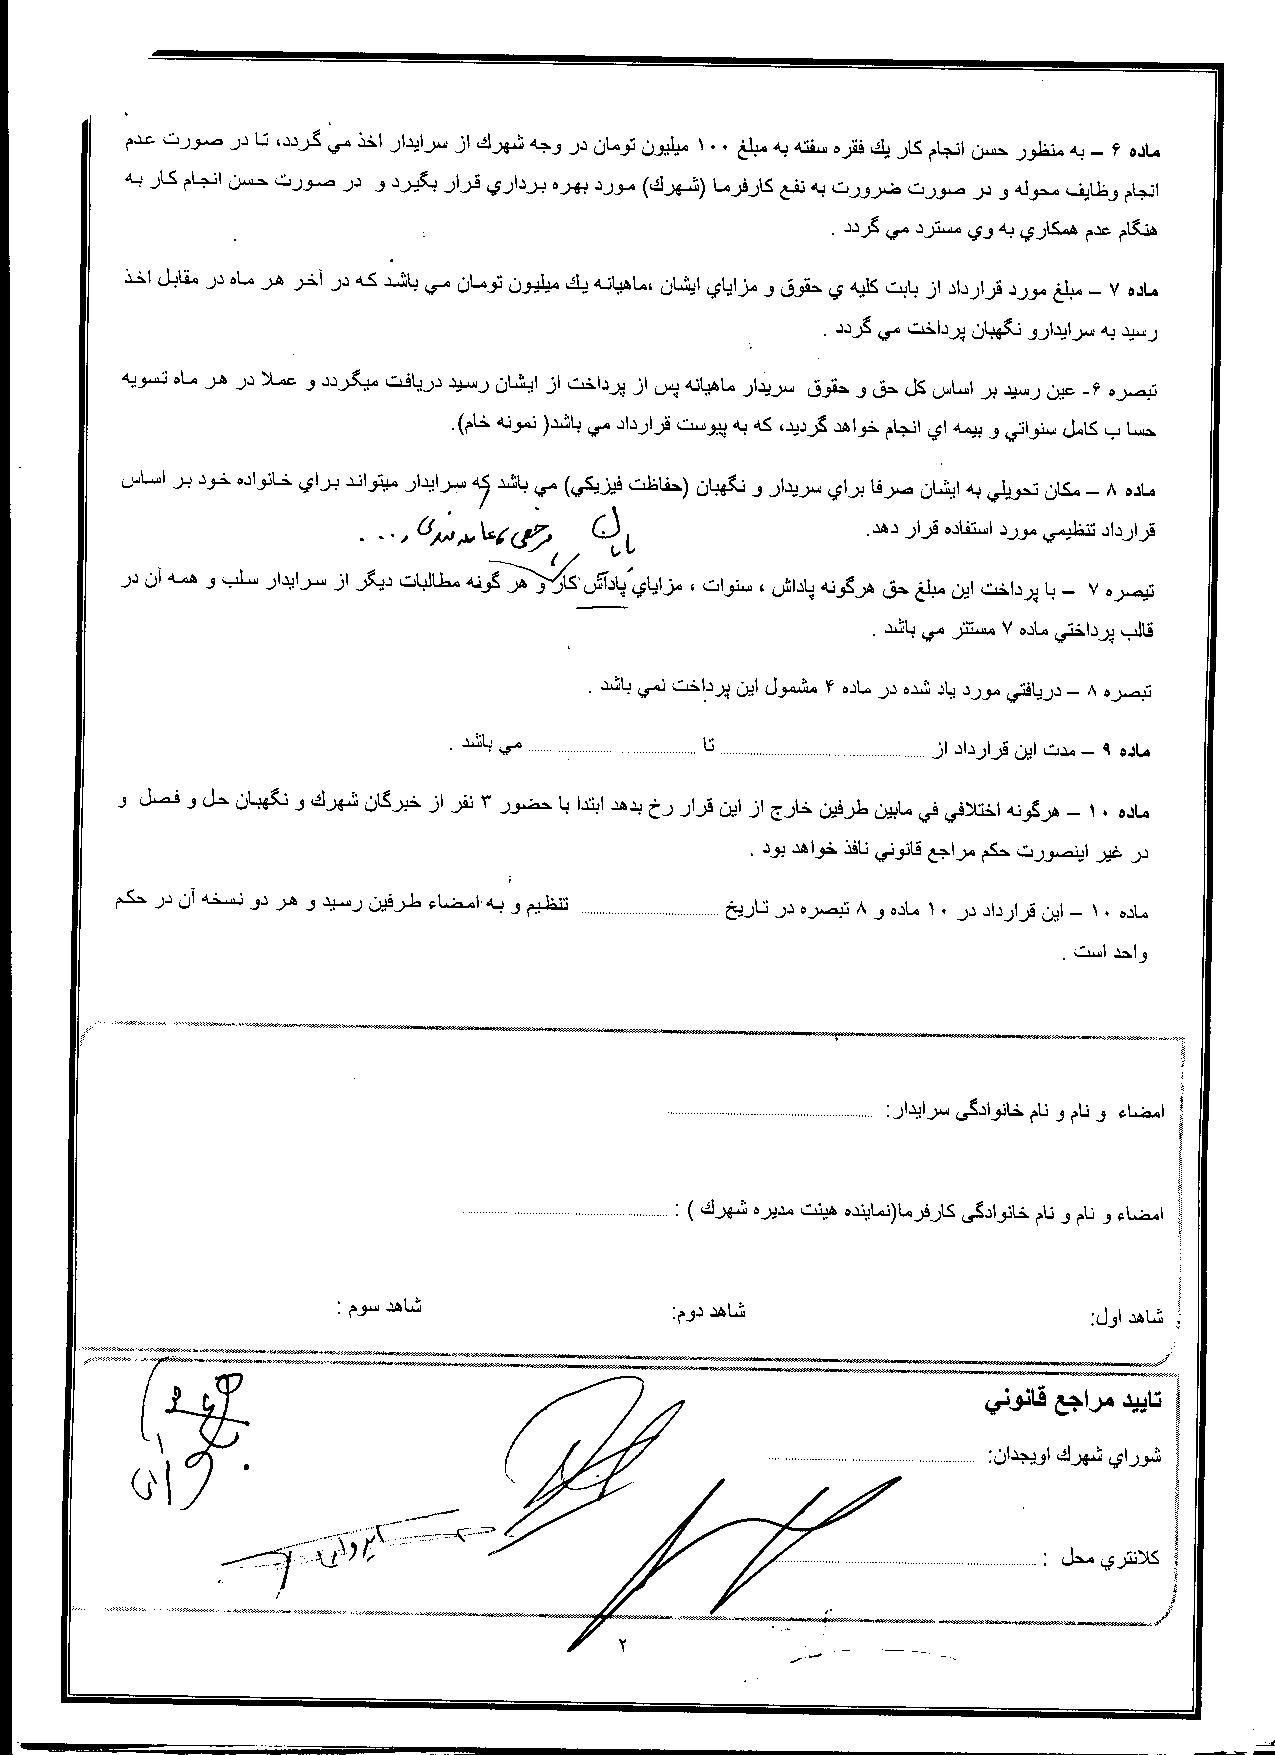 ماده ۶ – به منظور حسن انجام كار يك فقره سفته به مبلغ ۱۰۰ ميليون تومان در وجه شهرك از سرايدار اخذ مي گردد، تا در صورت عدم
انجام وظايف محوله و در صورت ضرورت به نفع كارفرما (شهرك) مورد بهره برداري قرار بگيرد و در صورت حسن انجام كار به
هنگام عدم همكاري به وي مسترد مي گردد .
ماده ۷ – مبلغ مورد قرارداد از بابت كليه ي حقوق و مزاياي ايشان ،ماهيانه يك ميليون تومان مي باشد كه در آخر هر ماه در مقابل اخذ
رسيد به سرايدارو نگهبان پرداخت مي گردد .
تبصره ۶- عين رسيد بر اساس كل حق و حقوق سريدار ماهيانه پس از پرداخت از ايشان رسيد دريافت ميگردد و عملا در هر ماه تسويه
حسا ب كامل سنواتي و بيمه اي انجام خواهد گرديد، كه به پيوست قرارداد مي باشد( نمونه خام).
ماده ۸ – مكان تحويلي به ايشان صرفا براي سريدار و نگهبان (حفاظت فيزيكي) مي باشد كه سرايدار ميتواند براي خانواده خود بر اساس
قرارداد تنظيمي مورد استفاده قرار دهد.
پایان
تبصره ۷ – با پرداخت اين مبلغ حق هرگونه پاداش ، سنوات ، مزاياي پاداش كار و هر گونه مطالبات ديگر از سرايدار سلب و همه آن در
قالب پرداختي ماده ۷ مستتر مي باشد .
تبصره ۸ – دريافتي مورد ياد شده در ماده ۴ مشمول اين پرداخت نمي باشد .
ماده ۹ – مدت اين قرارداد از .......... تا .......... مي باشد .
ماده ۱۰ – هرگونه اختلافي في مابين طرفين خارج از اين قرار رخ بدهد ابتدا با حضور ۳ نفر از خبرگان شهرك و نگهبان حل و فصل و
در غير اينصورت حكم مراجع قانوني نافذ خواهد بود .
ماده ۱۰ – اين قرارداد در ۱۰ ماده و ۸ تبصره در تاريخ .......... تنظيم و به امضاء طرفين رسيد و هر دو نسخه آن در حكم
واحد است .
امضاء و نام و نام خانوادگى سرايدار: ..........
امضاء و نام و نام خانوادگى كارفرما(نماينده هيئت مديره شهرك ) : ..........
شاهد اول: شاهد دوم: شاهد سوم :
تاييد مراجع قانوني
شوراي شهرك اويجدان: ..........
كلانتري محل : ..........
۲